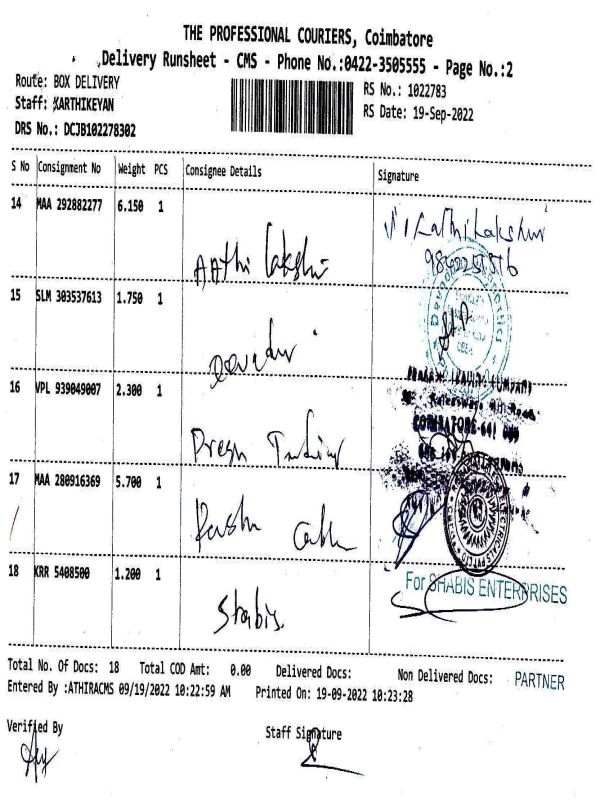 THE PROFESSIONAL COURIERS, Coimbatore
Delivery Runsheet - CMS - Phone No.:0422-3505555 - Page No.:2
Route: BOX DELIVERY
RS No.: 1022783
Staff: KARTHIKEYAN
RS Date: 19-Sep-2022
DRS No.: DCJB102278302
S No Consignment No Weight PCS Consignee Details Signature
14 MAA 292882277 6.150 1
AAthi lakshi
15 SLM 303537613 1.750 1
16 VPL 939049007 2.300 1
COIMBATORE-641
17 MAA 280916369 5.700 1
18 KRR 5408500 1.200 1
Shabis
For SHABIS ENTERPRISES
Total No. Of Docs: 18 Total COD Amt: 0.00 Delivered Docs: Non Delivered Docs: PARTNER
Entered By :ATHIRACMS 09/19/2022 10:22:59 AM Printed On: 19-09-2022 10:23:28
Verified By Staff Signature